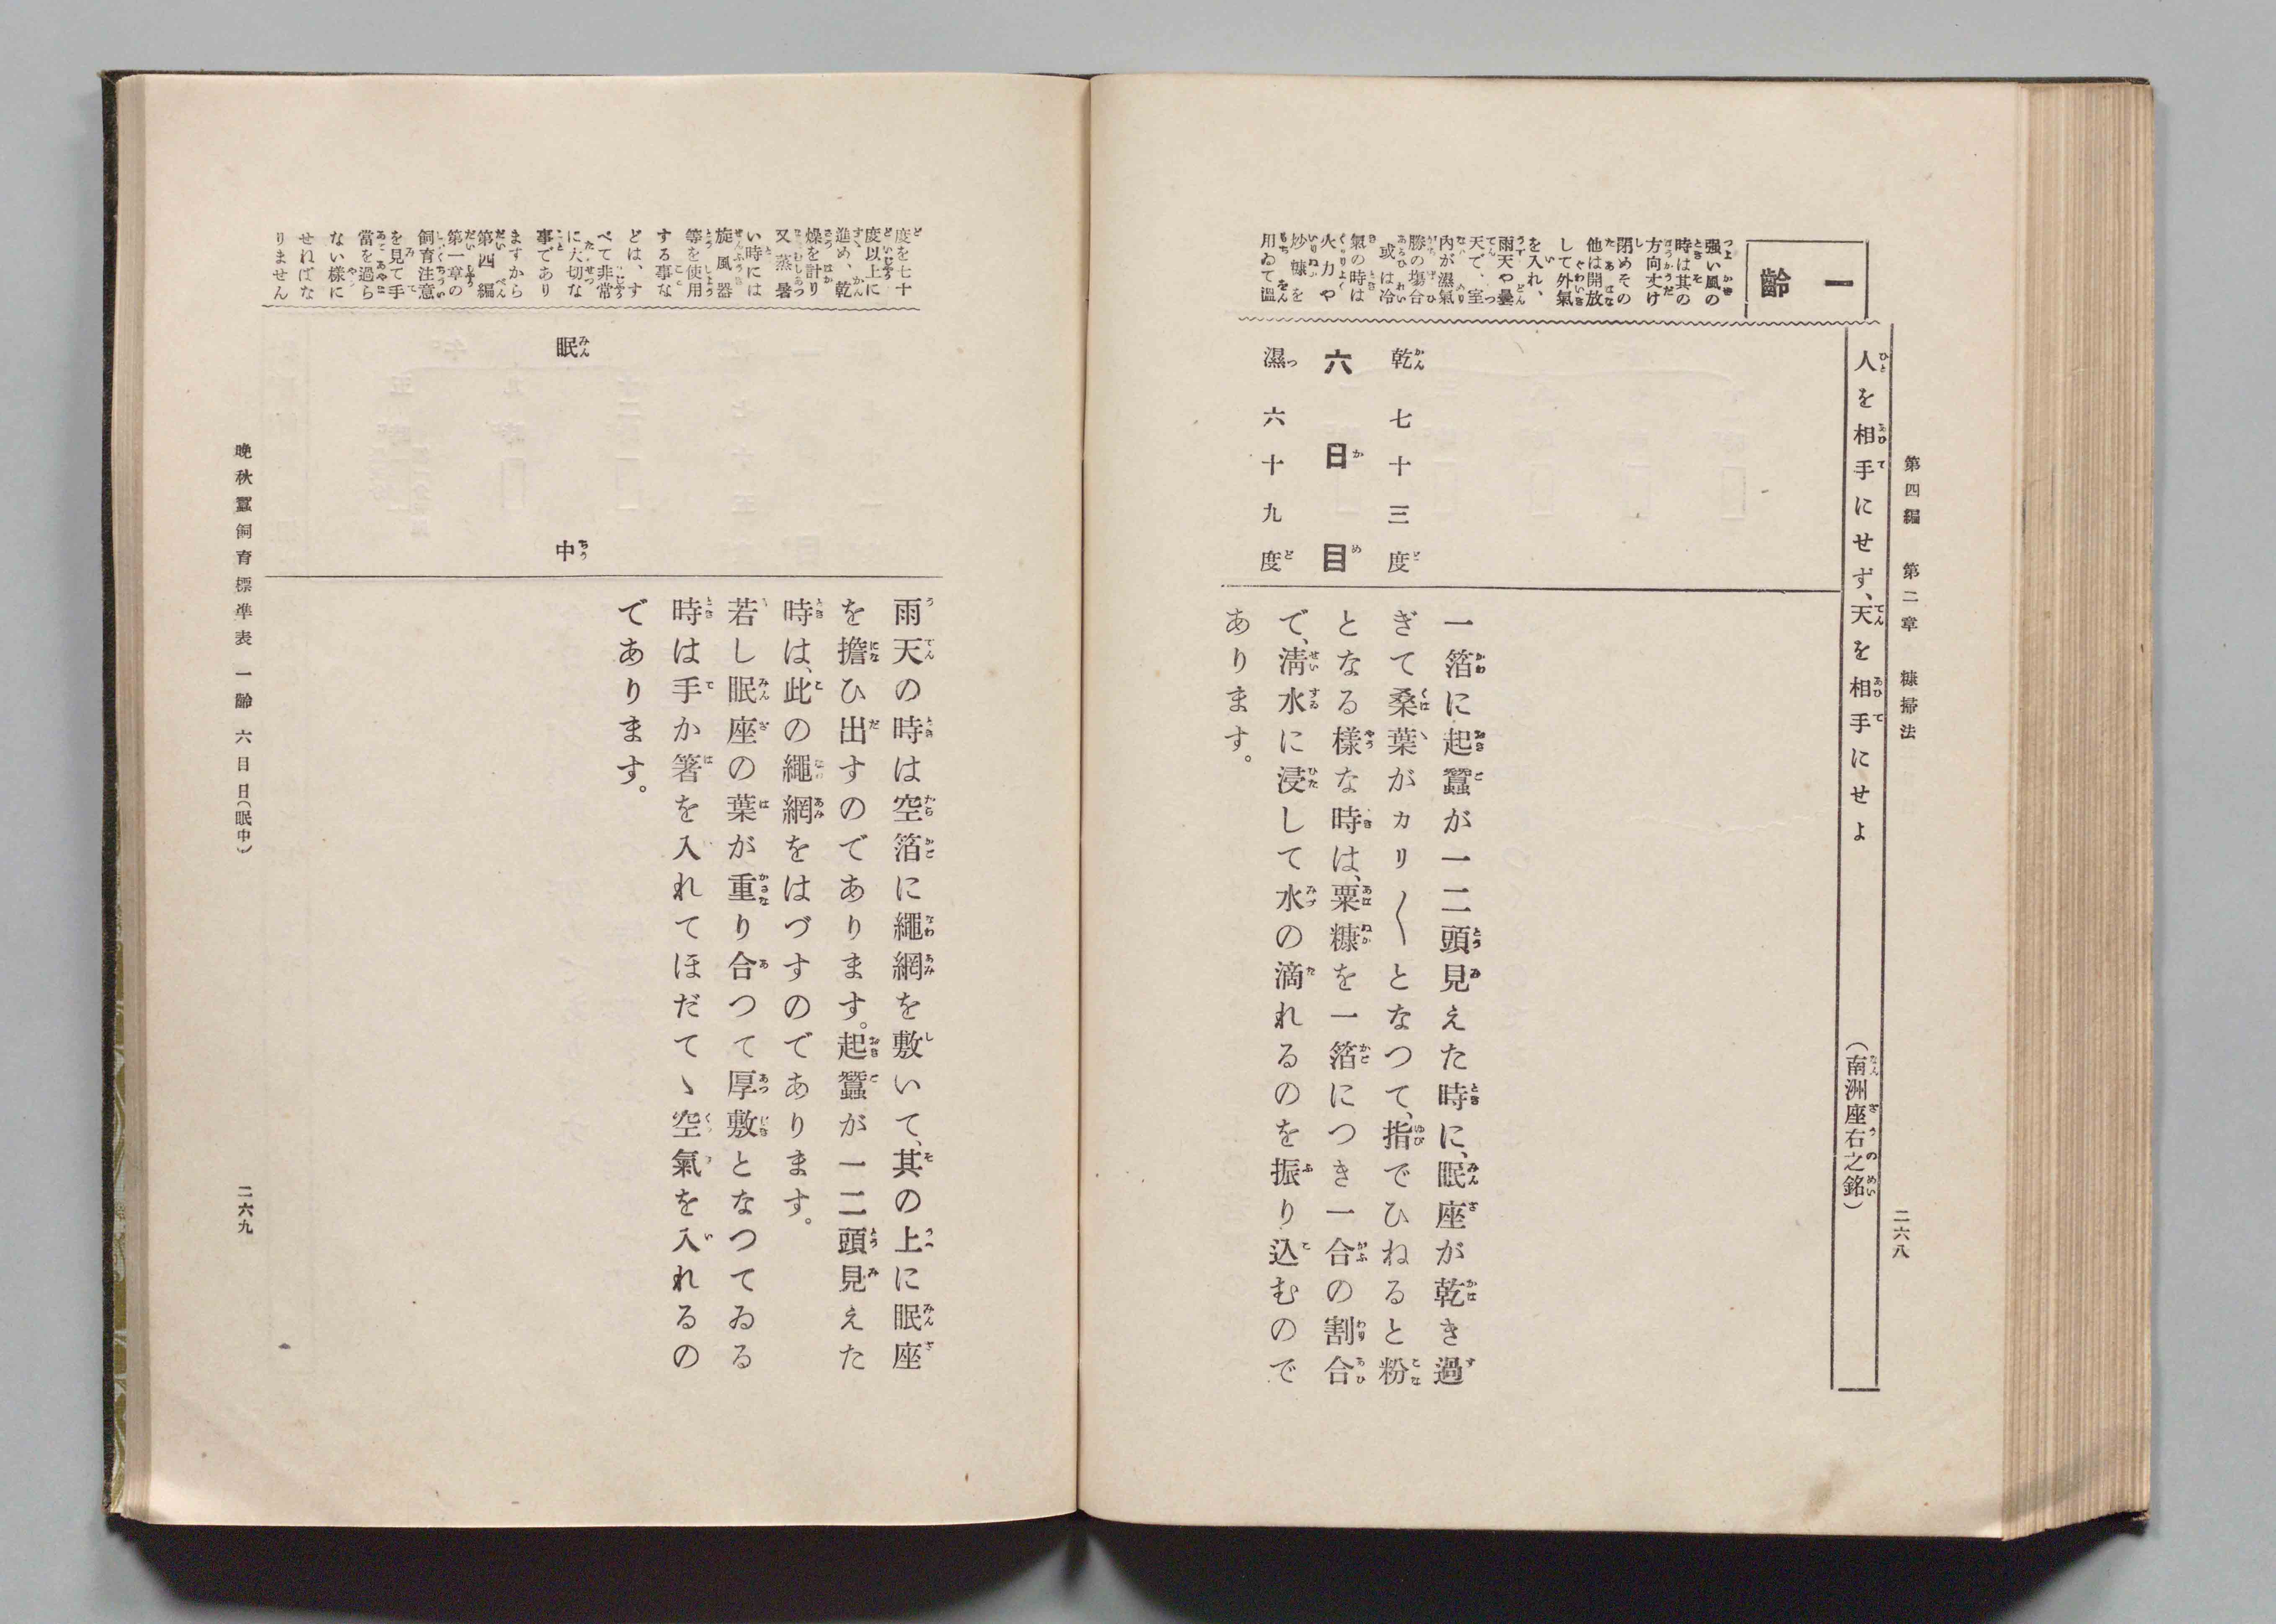 第四編　第二章　糠掃法
二六八
人を相手にせず、天を相手にせよ
（南洲座右之銘）
一齡
强い風の
時は其の
方向丈け
閉めその
他は開放
して外氣
を入れ、
雨天や曇
天で、室
內が濕氣
勝の場合
或は冷
氣の時は
火力や
炒糠を
用ゐて溫
乾七十三度
六日目
濕六十九度
一箔に起蠶が一二頭見えた時に、眠座が乾き過
ぎて桑葉がカリ〳〵となつて、指でひねると粉
となる樣な時は、粟糠を一箔につき一合の割合
で、淸水に浸して水の滴れるのを振り込むので
あります。
度を七十
度以上に
進め、乾
燥を計り
又蒸暑
い時には
旋風器
等を使用
する事な
どは、す
べて非常
に大切な
事であり
ますから
第四編
第一章の
飼育注意
を見て手
當を過ら
ない樣に
せねばな
りません
眠中
雨天の時は空箔に繩網を敷いて、其の上に眠座
を擔ひ出すのであります。起蠶が一二頭見えた
時は、此の繩網をはづすのであります。
若し眠座の葉が重り合つて厚敷となつてゐる
時は手か箸を入れてほだてゝ空氣を入れるの
であります。
晚秋蠶飼育標準表　一齡　六日目（眠中）
二六九